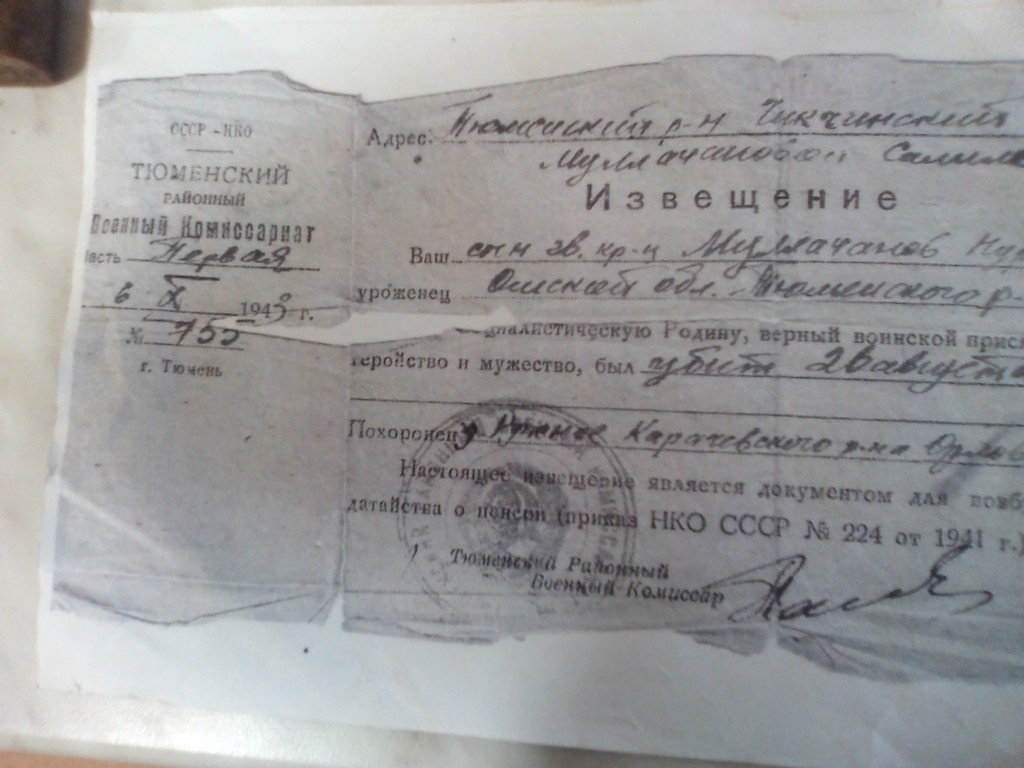 СССР - НКО
ТЮМЕНСКИЙ
РАЙОННЫЙ
Военный Комиссариат
часть Первая
6 X 1943 г.
№ 755
г. Тюмень
Адрес. Тюменский р-н Чикчинский
Муллачановой
Извещение
Ваш сын гв. кр-ц Муллачанов Нур
уроженец Омской обл. Тюменского р-
социалистическую Родину, верный воинской прися
геройство и мужество, был убит 20 августа
Похоронен Карачевского р-на Орлов
Настоящее извещение является документом для возб
датайства о пенсии (приказ НКО СССР № 224 от 1941 г.)
Тюменский Районный
Военный Комиссар